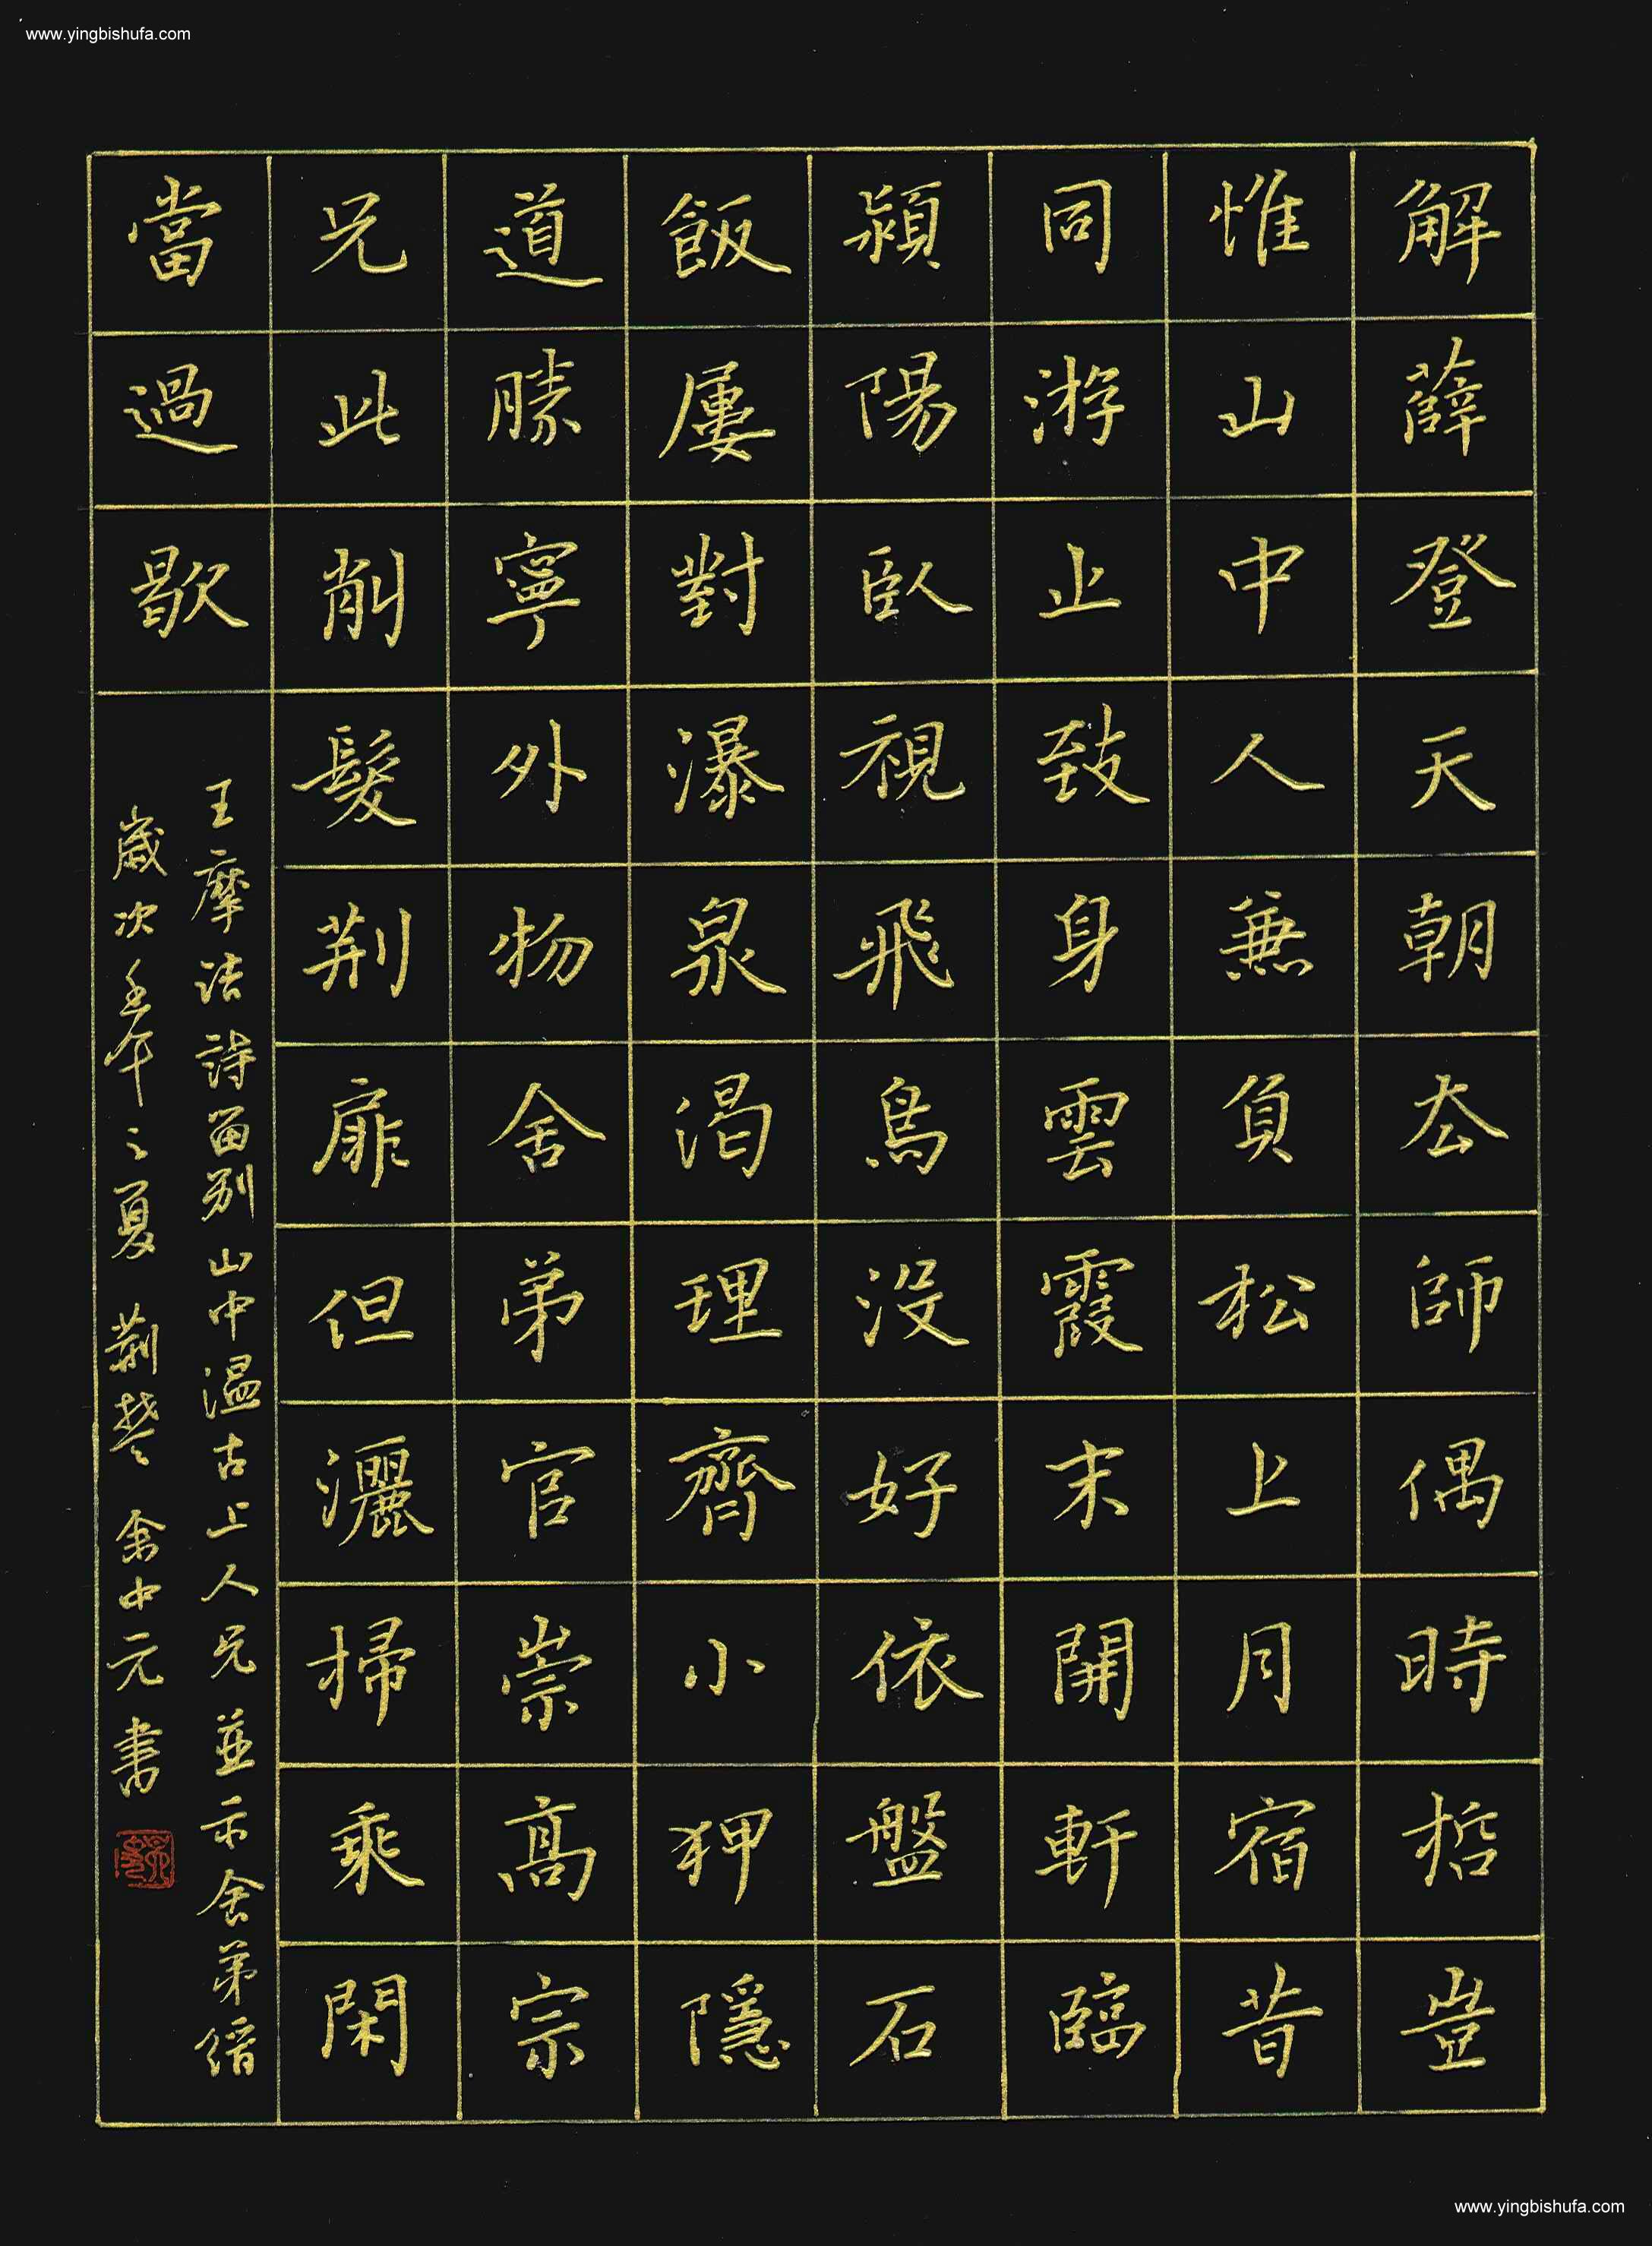 www.yingbishufa.com
解薜登天朝厺師偶時哲豈
惟山中人兼負松上月宿昔
同游止致身雲霞末開軒臨
潁陽臥視飛鳥没好依盤石
飯屢對瀑泉渴理齊小狎隱
道勝寧外物舍弟官崇高宗
兄此削髮荆扉但灑掃乘閑
當過歇
王摩诘詩留别山中温古上人兄並示舍弟缙
歲次壬午之夏 荆楚 余中元書
www.yingbishufa.com